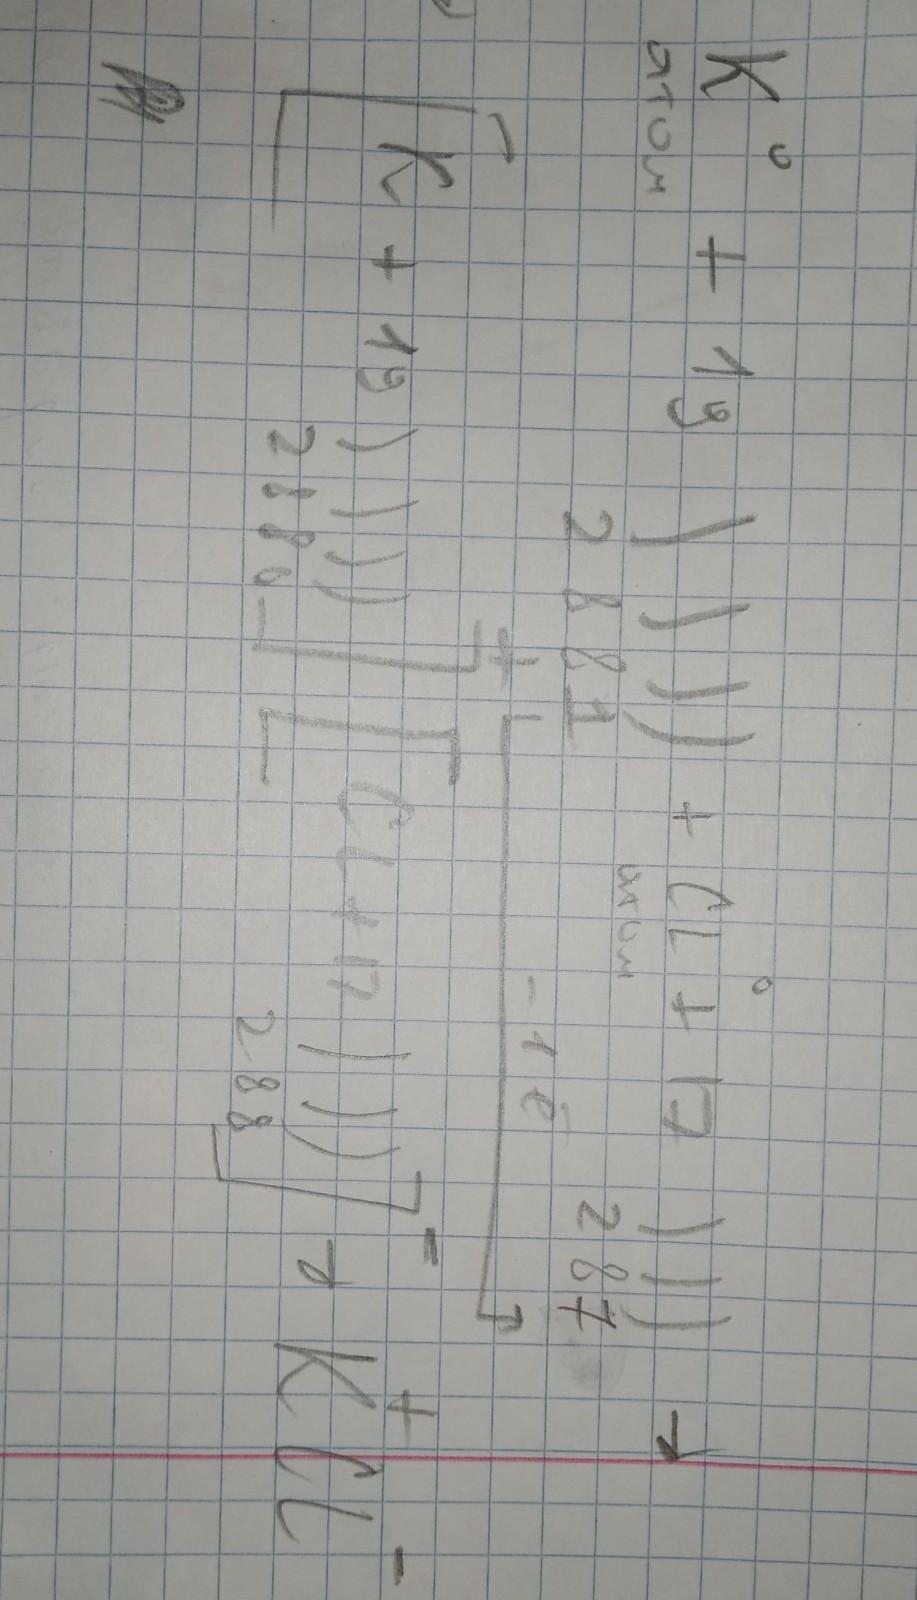 K⁰ + 19 ) ) ) ) + Cl⁰ + 17 ) ) ) →
атом 2 8 8 1 атом 2 8 7
- 1 ē
[K + 19 ) ) ) ) ]⁺ [Cl + 17 ) ) ) ]⁻ → K⁺Cl⁻
2 8 8 0 2 8 8